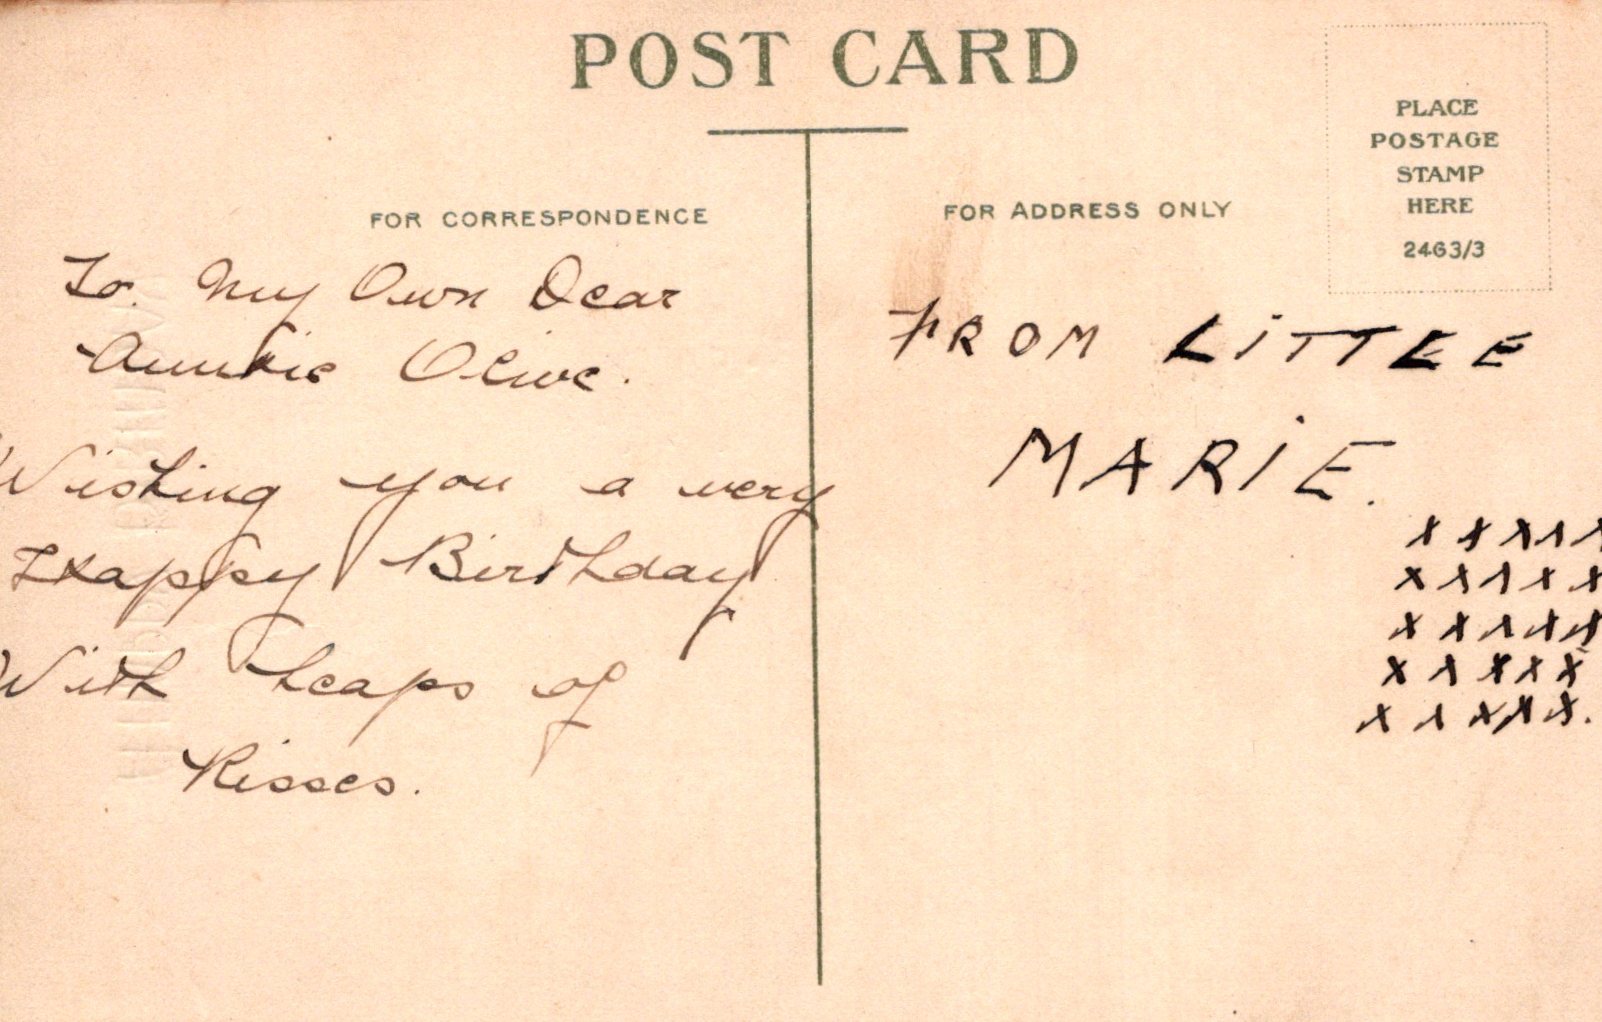 POST CARD
PLACE
POSTAGE
STAMP
HERE
2463/3
FOR CORRESPONDENCE
To. My Own Dear
Auntie Olive.
Wishing you a very
Happy Birthday
With heaps of
Kisses.
FOR ADDRESS ONLY
FROM LiTTLE
MARiE.
x x x x x
x x x x x
x x x x x
x x x x x
x x x x x.